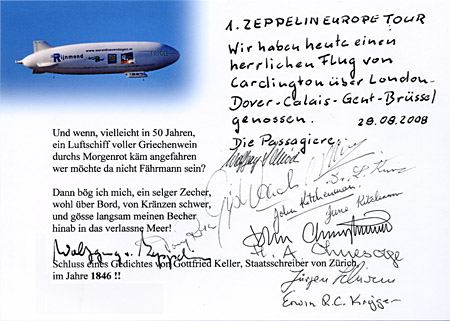 Rijnmond
www.wereldhavendagen.nl
1. ZEPPELIN EUROPE TOUR
Wir haben heute einen
herrlichen Flug von
Cardington über London-
Dover-Calais-Gent-Brüssel
genossen. 28.08.2008
Die Passagiere:
Und wenn, vielleicht in 50 Jahren,
ein Luftschiff voller Griechenwein
durchs Morgenrot käm angefahren
wer möchte da nicht Fährmann sein?
Dann bög ich mich, ein selger Zecher,
wohl über Bord, von Kränzen schwer,
und gösse langsam meinen Becher
hinab in das verlassne Meer!
John Kitchenman
June Kitchenman
Wolfgang v. Zeppelin
Schluss eines Gedichtes von Gottfried Keller, Staatsschreiber von Zürich,
im Jahre 1846 !!
Jürgen
Erwin R.C. Krüger